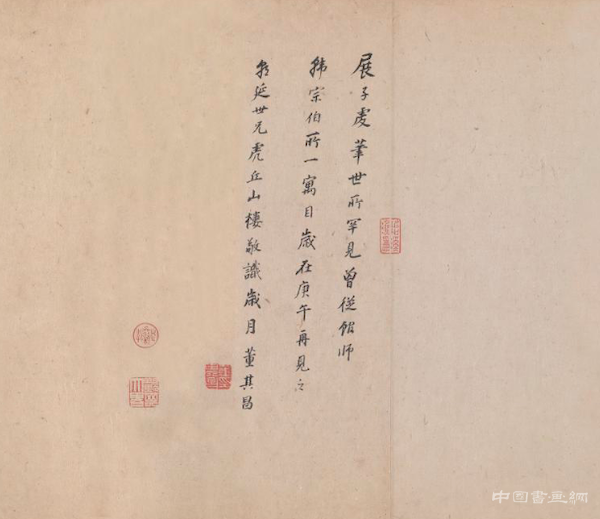 展子虔筆世所罕見曾從館師
韓宗伯所一寓目歲在庚午再見之
朝延世兄虎丘山樓敬識歲月 董其昌
中国書畫網